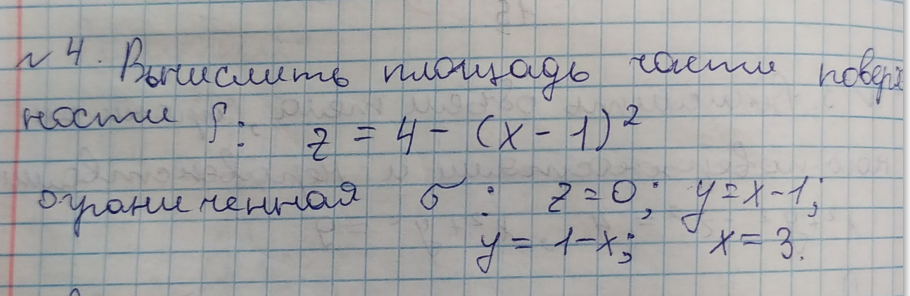 № 4. Вычислить площадь части поверх
ности S: z = 4 - (x - 1)²
ограниченная σ : z = 0; y = x - 1;
y = 1 - x; x = 3.